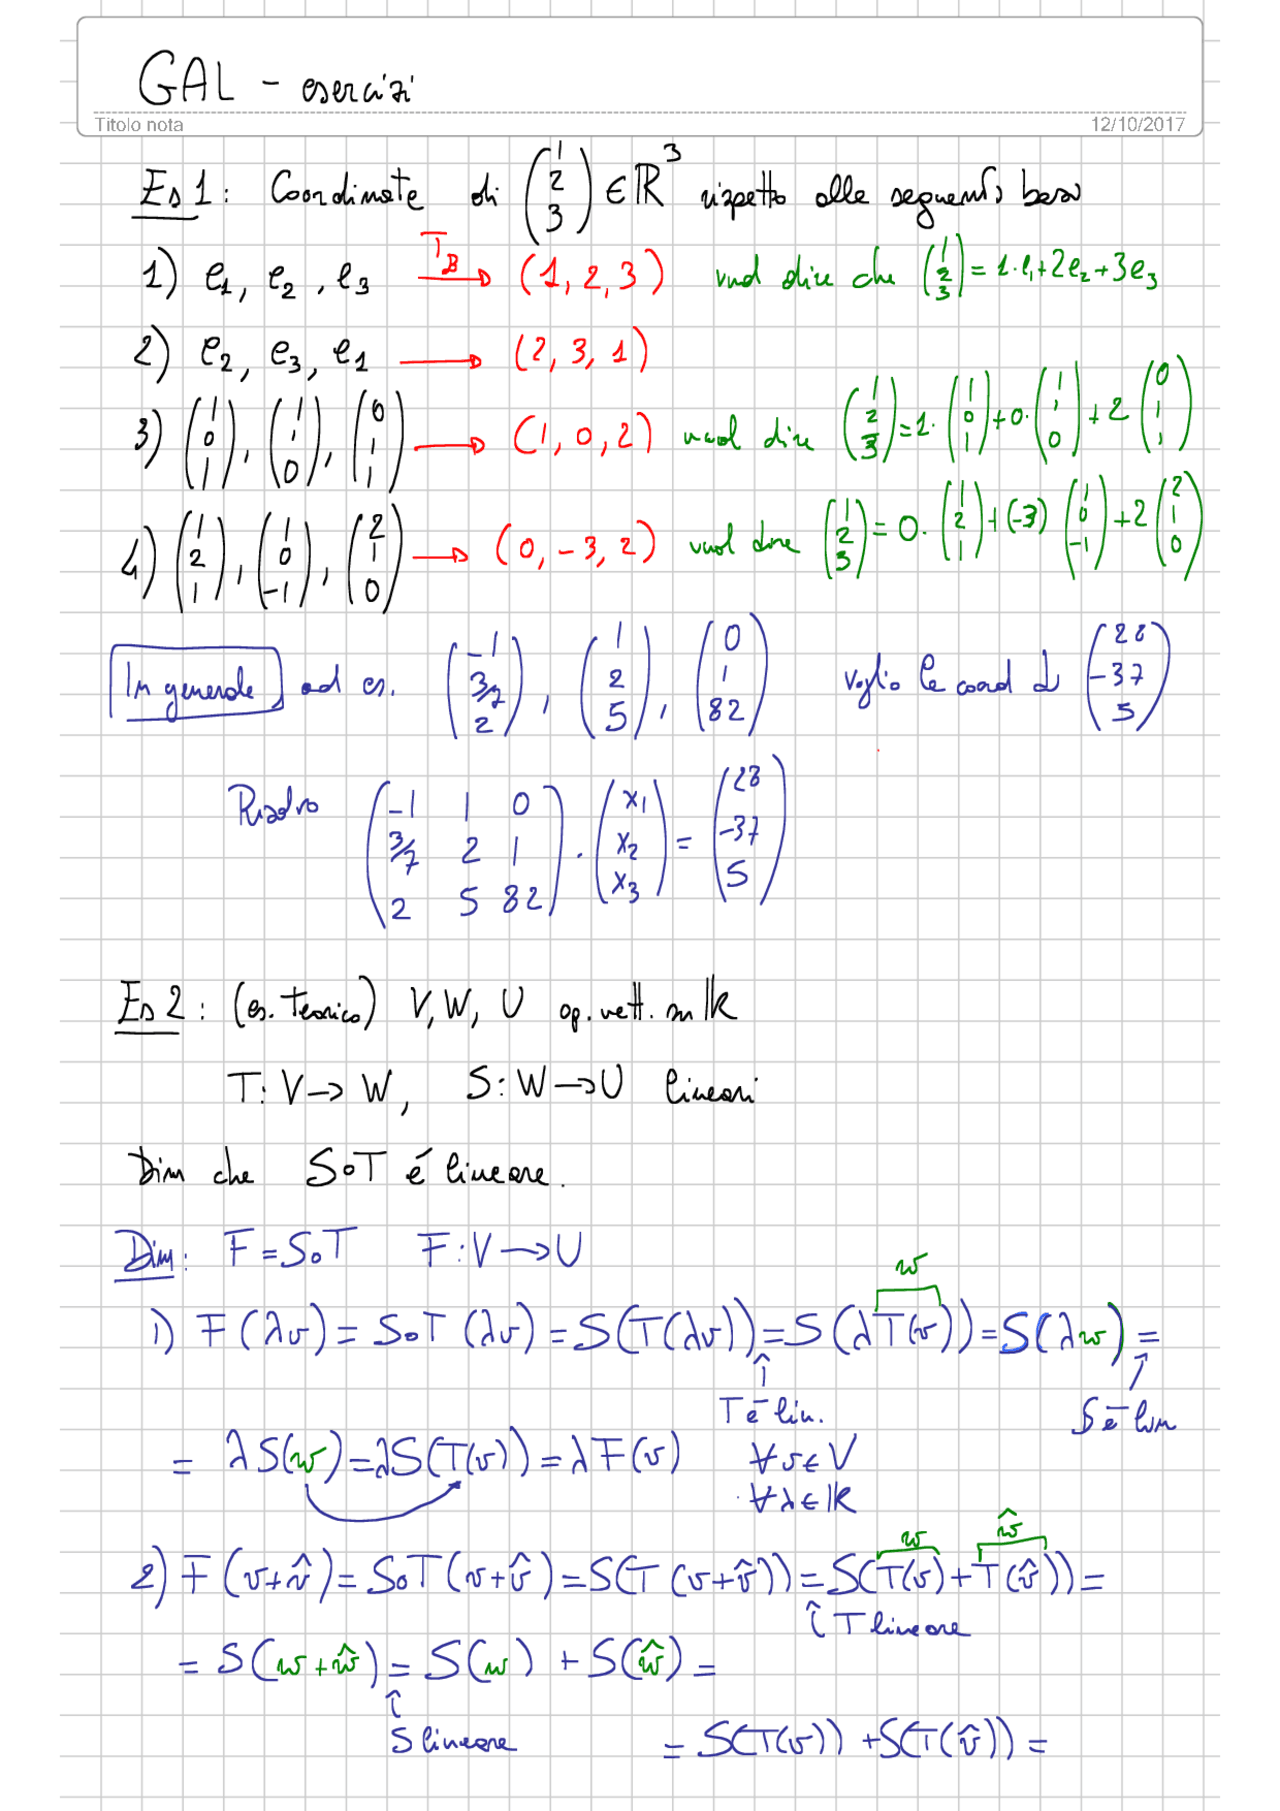 GAL - esercizi
Titolo nota 12/10/2017
Es 1: Coordinate di (1 2 3) ∈ ℝ³ rispetto alle seguenti basi
1) e₁, e₂, e₃ →(T_B) (1, 2, 3) vuol dire che (1 2 3) = 1·e₁+2e₂+3e₃
2) e₂, e₃, e₁ → (2, 3, 1)
3) (1 0 1), (1 1 0), (0 1 1) → (1, 0, 2) vuol dire (1 2 3) = 1·(1 0 1)+0·(1 1 0)+2(0 1 1)
4) (1 2 1), (1 0 -1), (2 1 0) → (0, -3, 2) vuol dire (1 2 3) = 0·(1 2 1)+(-3)(1 0 -1)+2(2 1 0)
In generale ad es. (-1 3/7 2), (1 2 5), (0 1 82) voglio le coord di (28 -37 5)
Risolvo (-1 1 0 / 3/7 2 1 / 2 5 82)·(x₁ x₂ x₃) = (28 -37 5)
Es 2: (es. teorico) V, W, U sp. vett. su 𝕜
T: V → W, S: W → U lineari
Dim che S∘T é lineare.
Dim: F = S∘T F: V → U
w
1) F(λv) = S∘T(λv) = S(T(λv)) = S(λT(v)) = S(λw) =
T é lin. S é lin
= λS(w) = λS(T(v)) = λF(v) ∀v∈V
∀λ∈𝕜
w ŵ
2) F(v+v̂) = S∘T(v+v̂) = S(T(v+v̂)) = S(T(v)+T(v̂)) =
T lineare
= S(w+ŵ) = S(w) + S(ŵ) =
S lineare = S(T(v)) + S(T(v̂)) =